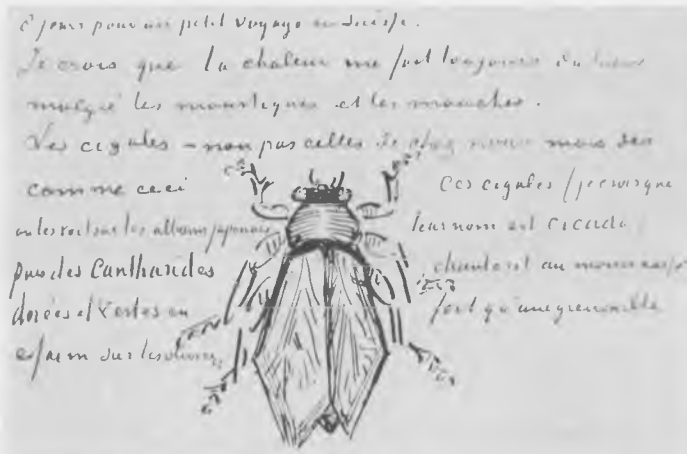 jours pour un petit voyage en Suisse.
Je crois que la chaleur me fait toujours du bien
malgré les moustiques et les mouches.
Les cigales – non pas celles de chez nous mais des
comme ceci
on les voit sur les albums japonais
puis des Cantharides
dorées et vertes en
essaim sur les oliviers,
Ces cigales (je crois que
leur nom est cicada)
chantent au moins aussi
fort qu'une grenouille